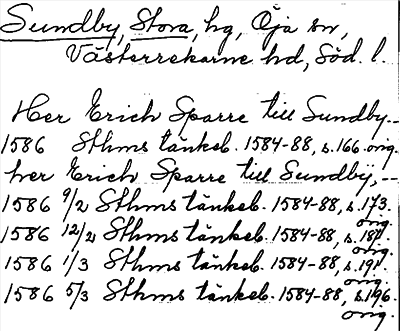 Sundby, Stora, hg, Öja sn,
Västerrekarne hd, Söd. l.
Her Erich Sparre till Sundby --
1586 Sthms tänkeb. 1584-88, s. 166. orig.
her Erich Sparre till Sundbÿ, --
1586 9/2 Sthms tänkeb. 1584-88, s. 173.
orig.
1586 12/2 Sthms tänkeb. 1584-88, s. 187.
orig.
1586 1/3 Sthms tänkeb. 1584-88, s. 191.
orig.
1586 5/3 Sthms tänkeb. 1584-88, s. 196.
orig.